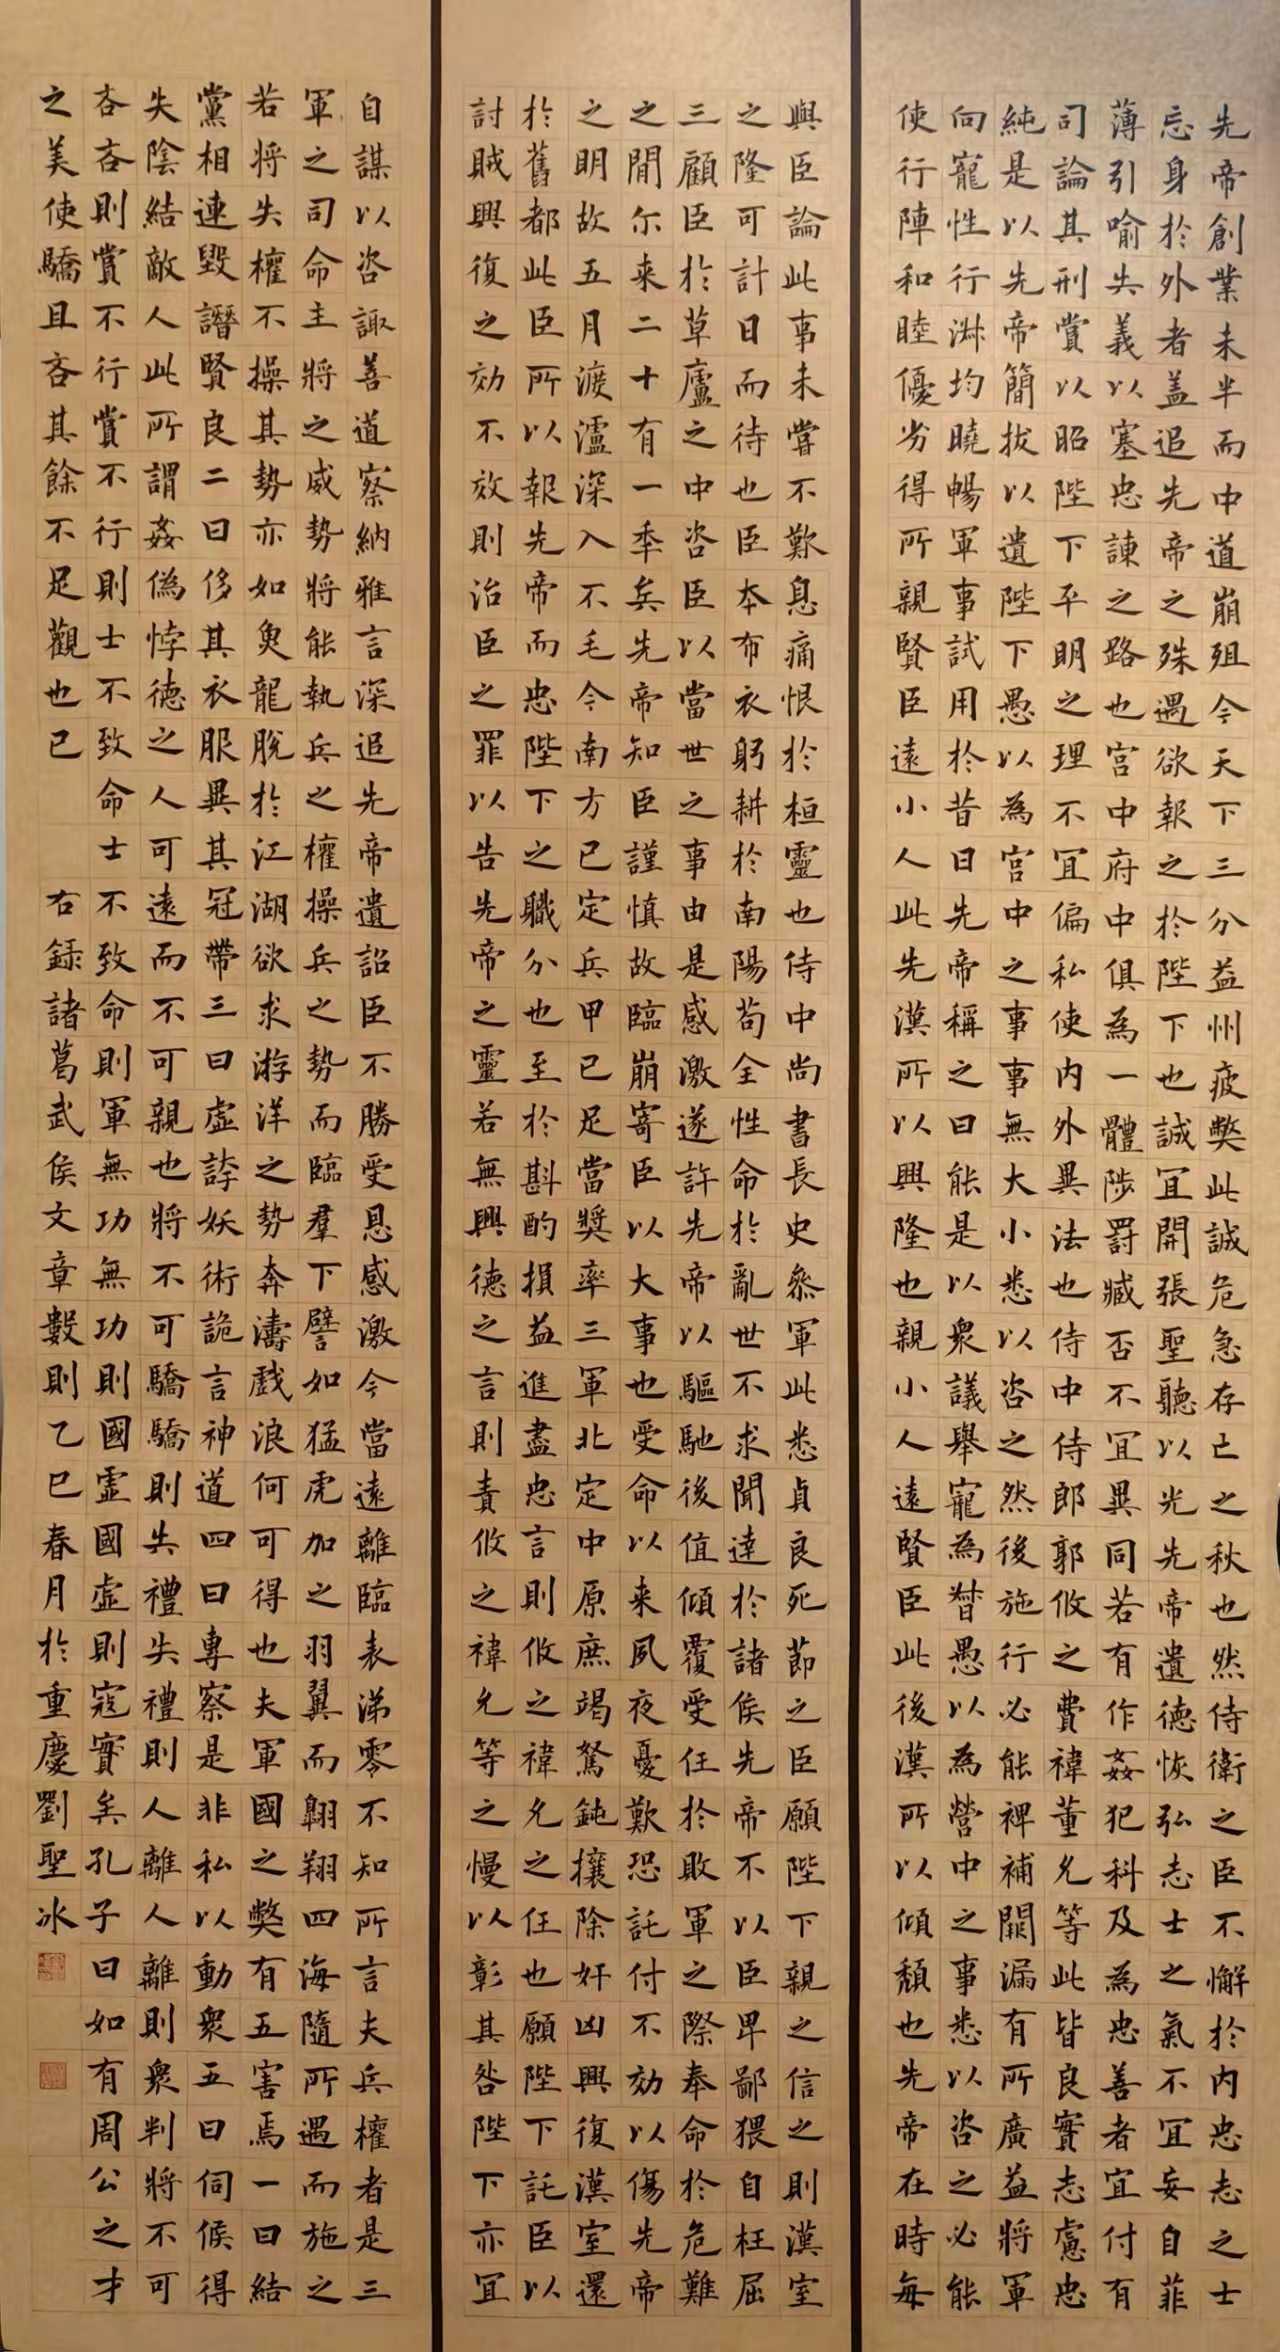 先帝創業未半而中道崩殂今天下三分益州疲弊此誠危急存亡之秋也然侍衛之臣不懈於內忠志之士
忘身於外者盖追先帝之殊遇欲報之於陛下也誠宜開張聖聽以光先帝遺德恢弘志士之氣不宜妄自菲
薄引喻失義以塞忠諫之路也宮中府中俱為一體陟罰臧否不宜異同若有作姦犯科及為忠善者宜付有
司論其刑賞以昭陛下平明之理不宜偏私使內外異法也侍中侍郎郭攸之費禕董允等此皆良實志慮忠
純是以先帝簡拔以遺陛下愚以為宮中之事事無大小悉以咨之然後施行必能裨補闕漏有所廣益將軍
向寵性行淑均曉暢軍事試用於昔日先帝稱之曰能是以衆議舉寵為督愚以為營中之事悉以咨之必能
使行陣和睦優劣得所親賢臣遠小人此先漢所以興隆也親小人遠賢臣此後漢所以傾頹也先帝在時每
與臣論此事未嘗不歎息痛恨於桓靈也侍中尚書長史叅軍此悉貞良死節之臣願陛下親之信之則漢室
之隆可計日而待也臣本布衣躬耕於南陽苟全性命於亂世不求聞達於諸侯先帝不以臣卑鄙猥自枉屈
三顧臣於草廬之中咨臣以當世之事由是感激遂許先帝以驅馳後值傾覆受任於敗軍之際奉命於危難
之間尔来二十有一季兵先帝知臣謹慎故臨崩寄臣以大事也受命以来夙夜憂歎恐託付不効以傷先帝
之明故五月渡瀘深入不毛今南方已定兵甲已足當獎率三軍北定中原庶竭駑鈍攘除奸凶興復漢室還
於舊都此臣所以報先帝而忠陛下之職分也至於斟酌損益進盡忠言則攸之禕允之任也願陛下託臣以
討賊興復之効不效則治臣之罪以告先帝之靈若無興德之言則責攸之禕允等之慢以彰其咎陛下亦宜
自謀以咨諏善道察納雅言深追先帝遺詔臣不勝受恩感激今當遠離臨表涕零不知所言夫兵權者是三
軍之司命主將之威勢將能執兵之權操兵之勢而臨羣下譬如猛虎加之羽翼而翱翔四海隨所遇而施之
若將失權不操其勢亦如魚龍脫於江湖欲求游洋之勢奔濤戲浪何可得也夫軍國之弊有五害焉一曰結
黨相連毀譖賢良二曰侈其衣服異其冠帶三曰虛誇妖術詭言神道四曰專察是非私以動衆五曰伺候得
失陰結敵人此所謂姦偽悖德之人可遠而不可親也將不可驕驕則失禮失禮則人離人離則衆判將不可
吝吝則賞不行賞不行則士不致命士不致命則軍無功無功則國虛國虛則寇實矣孔子曰如有周公之才
之美使驕且吝其餘不足觀也已 右錄諸葛武侯文章數則乙巳春月於重慶劉聖冰